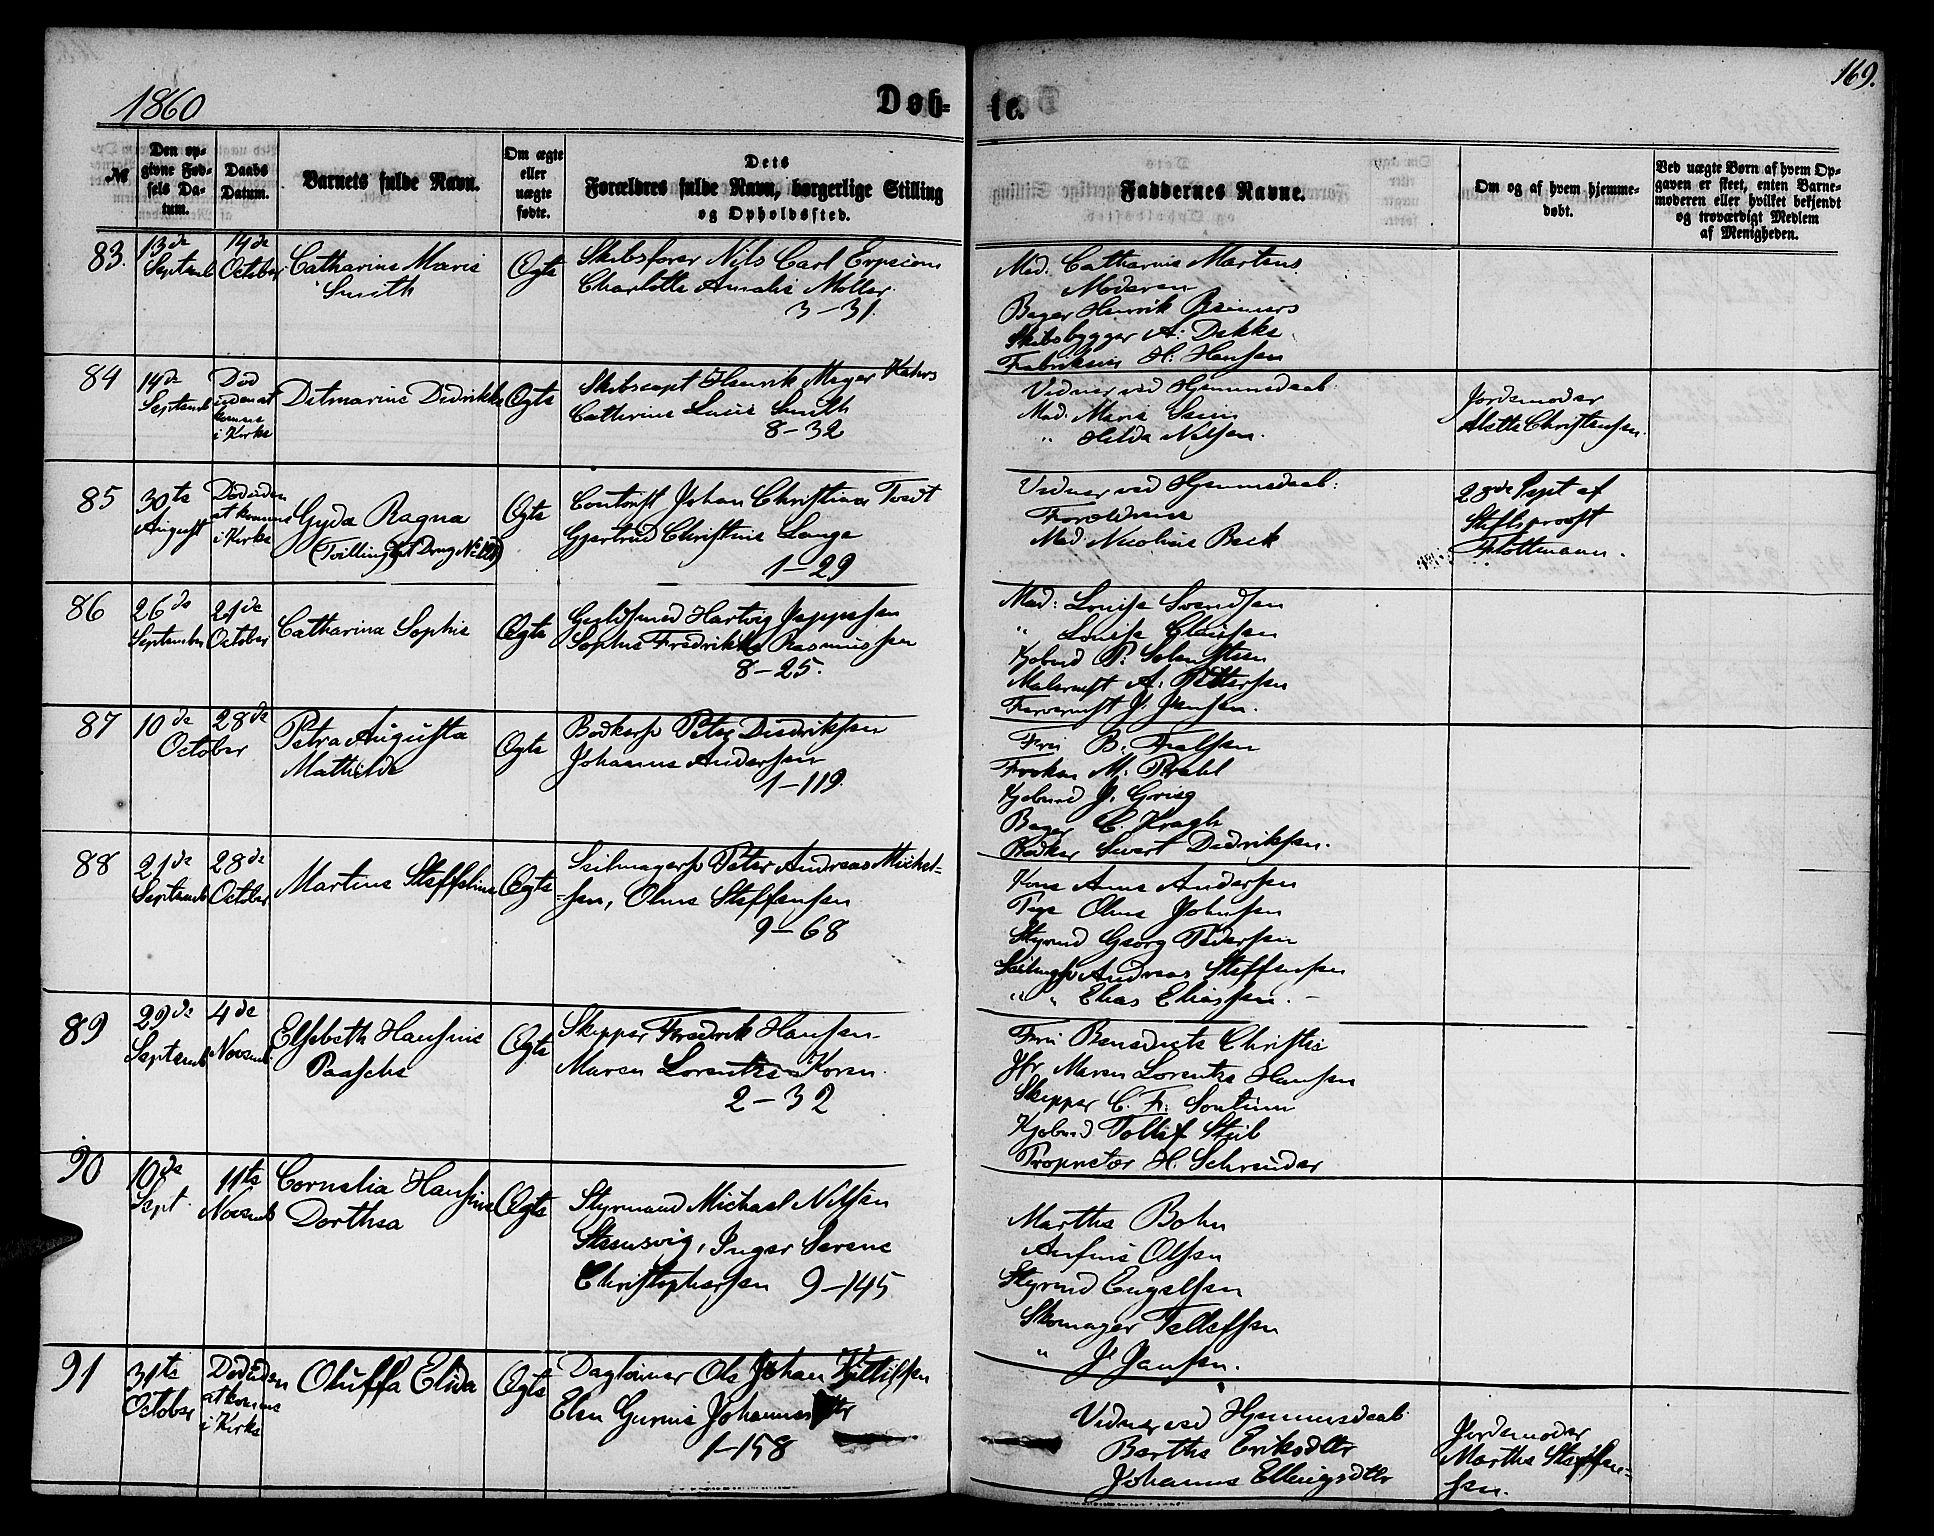 1860
Døb-
te.
169.
№
Den op-
givne Fød-
sels Da-
tum.
Daabs
Datum.
Barnets fulde Navn.
Om ægte
eller
uægte
fødte.
Dets
Forældres fulde Navn, borgerlige Stilling
og Opholdssted.
Faddernes Navne.
Om og af hvem hjemme-
døbt.
Ved uægte Børn af hvem Op-
gaven er skeet, enten Barne-
moderen eller hvilket bekjendt
og troværdigt Medlem
af Menigheden.
83.
13de
Septemb
14de
October
Catharine Marie
Smith
Ægte
Skibsfører Nils Carl
Charlotte Amalie Møller
3-31
Mad. Catharine Martens
Moderen
Bager Henrik Reimers
Skibsbygger A. Dekke
H. Hansen
84
14de
Septemb
Død
uden at
komme
i Kirke
Ditmarine Didrikke
Ægte
Skibscapt Henrik Meyer Kahrs
Cathrine Lucie Smith
8-32
Vidner ved Hjemmedaab:
Mad. Marie
" Hilda Nilsen.
Jordemoder
Alette Christensen.
85
30te
August
Død uden
at komme
i Kirke
Gyda Ragna
(Tvilling
Ægte
Contorist Johan Christian Tvedt
Gjertrud Christine Lange
1-29
Vidner ved Hjemmedaab:
Forældrene
Mad Nicoline Beck
28de Sept af
Stiftsprovst
Flottmann.
86
26de
September
21de
October
Catharina Sophie
Ægte
Guldsmed Hartvig Jeppesen
Sophie Fredrikke Rasmussen
8-25.
Mad: Louise Svendsen
" Louise Clausen
Kjøbmd P.
A. Pettersen
J. Jansen.
87
10de
28de
October
Petra Augusta
Mathilde
Ægte
Bødkers. Peter Didriksen
Johanne Andersen
1-119.
Fru B. Falsen
Frøken M. Prahl
Kjøbmd J. Grieg
Bager C. Kragh
Bødker Sivert Didriksen.
88
21de
Septemb
28de
October
Martine Steffeline
Ægte
Seilmagers. Peter Andreas Michel-
-sen, Oline Steffensen
9-68
Kone Anne Andersen
Pige Oline Johnsen
Styrmd Georg Pedersen
Andreas Steffensen
" " Elias Eliassen. -
89
29de
Septemb
4de
Novemb.
Elsebeth Hansine
Paasche
Ægte
Skipper Fredrik Hansen
Maren Lorentze Koren.
2-32
Fru Benedicte Christie
Jfr Maren Lorentze Hansen
Skipper C. F. Sontum
Kjøbmd. Tollef Stub
Proprietær H. Schreuder
90
10de
Sept.
11te
Novemb
Cornelia Hansine
Dorthea
Ægte
Styrmand Michael Nilsen
Steensvig, Inger Serene
Christophersen 9-145
Marthe Bohn
Ansine Olsen
Styrmd Engelsen
Skomager Tellefsen
" J. Jansen.
91
31te
October
Død uden
at komme
i Kirke
Oluffa Elida
Ægte
Dagleier Ole Johan Kittilsen
Elen Gurine
1-158
Vidner ved Hjemmedaab
Barthe Eriksdtr
Johanne Ellingsdtr
Jordemoder
Marthe Steffen-
sen.